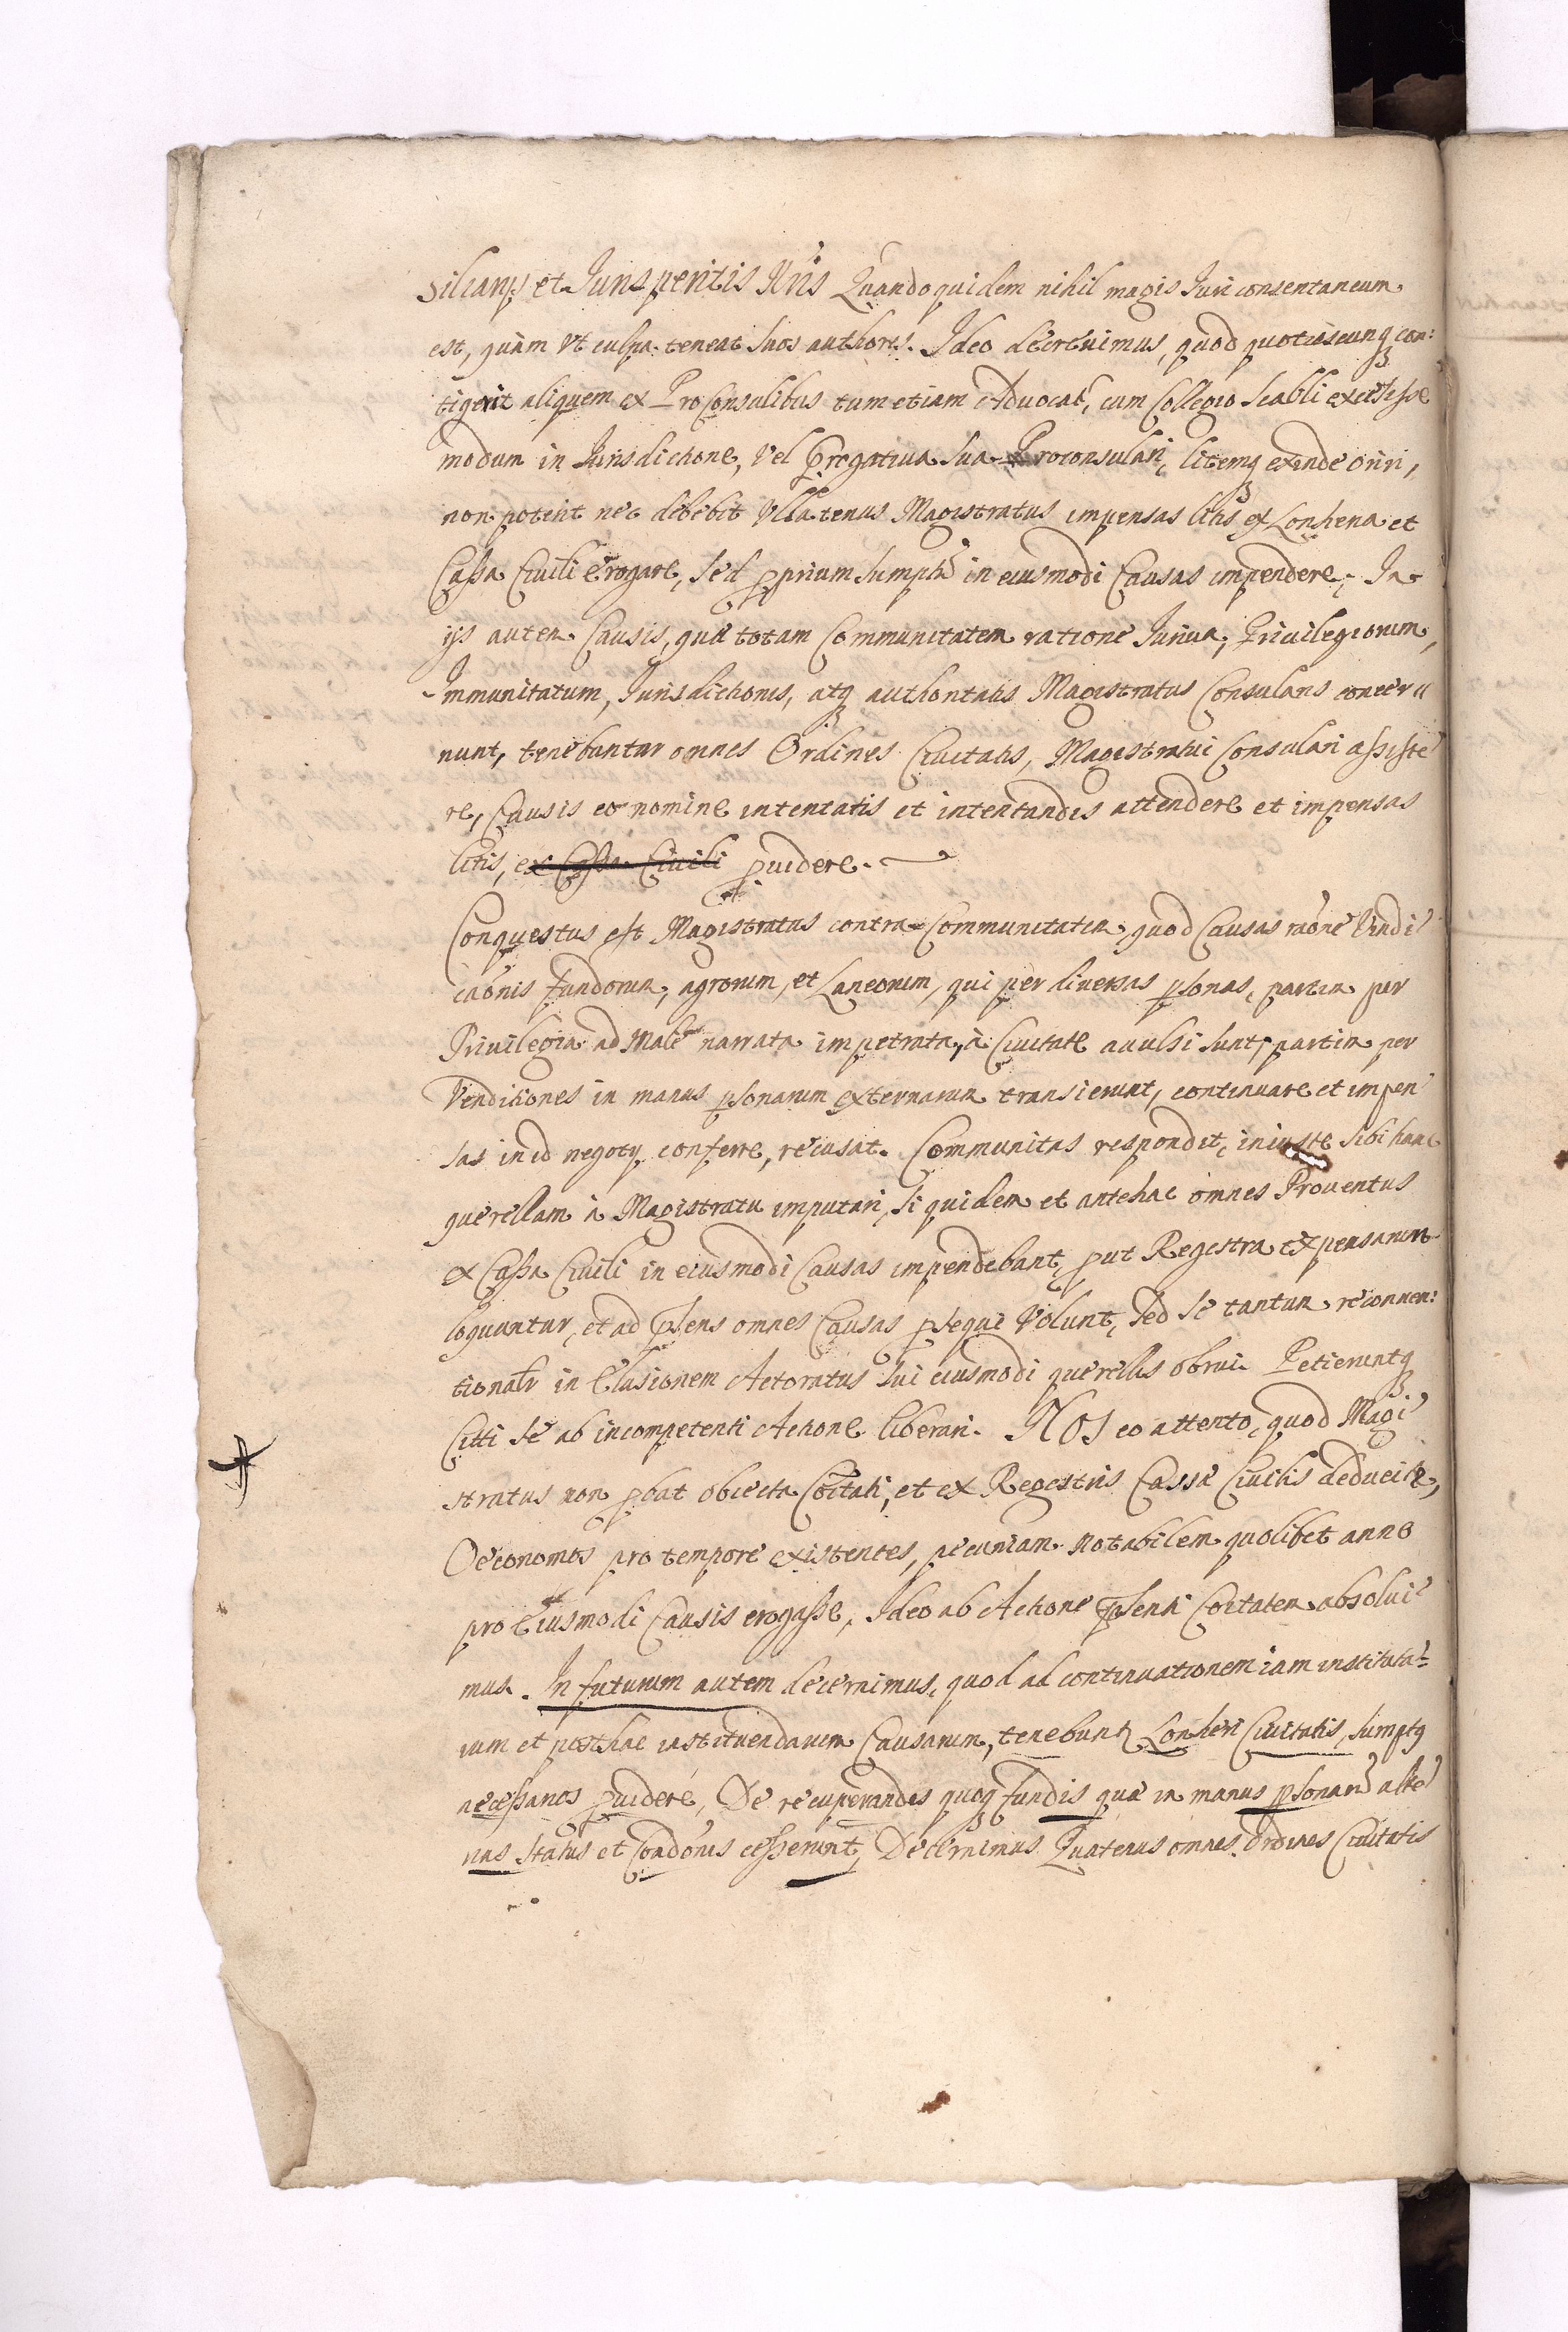 siliarijs et Juris peritis Nris Quandoquidem nihil magis Juri consentaneum
est, quàm vt culpa teneat suos authores. Ideo decreuimus, quod quotiescunq con:
tigerit aliquem ex Proconsulibus tum etiam Aduocat, cum Collegio Scabli excessisse
modum in Jurisdictione, vel Prrogatiua sua Proconsulari, litemq exinde oriri,
non poterit nec debebit vllatenus Magistratus impensas litis ex Lonheria et
Cassa Ciuili erogare, sed pprium sumptu in eiusmodi Causas impendere. In
ijs autem Causis, quæ totam Communitatem ratione Jurium, Priuilegiorum,
Immunitatum, Jurisdictionis, atq authoritatis Magistratus Consularis concer"
nunt, tenebuntur omnes Ordines Ciuitatis, Magistratui Consulari assiste
re, Causis eo nomine intentatis et intentandis attendere et impensas
litis, ex Cassa Ciuili puidere.
Conquestus est Magistratus contra Communitatem quod Causas raône Vindi
caônis fundorum, agrorum, et Laneorum, qui per diuersas psonas, partim per
Priuilegia ad Malè narrata impetrata, à Ciuitate auulsi sunt, partim per
Venditiones in manus psonarum externarum transierunt, continuare et impen
sas in id negoty conferre, recusat. Communitas respondit, iniuste sibi hanc
querellam à Magistratu imputari, siquidem et antehac omnes Prouentus
ex Cassa Ciuili in eiusmodi Causas impendebant, put Regestra expensarum
loquuntur, et ad psens omnes Causas psequi Volunt, sed se tantum reconuen:
tionalr in Elusionem Actoratus sui eiusmodi querellis obrui. Petieruntq
Citti se ab incompetenti Actione liberari. NOS eo attento, quod Magi
stratus non pbat obiecta Coitati, et ex Regestris Cassæ Ciuilis deducitr,
Oeconomos pro tempore existentes, pecuniam notabilem quolibet anno
pro Eiusmodi Causis erogasse, Ideo ab Actione psenti Coitatem absolui
mus. In futurum autem decernimus, quod ad continuationem iam instituta=
rum et posthac instituendarum Causarum, tenebuntr Lonheri Ciuitatis, sumptq
necessarios puidere, De recuperandis quoq fundis quæ in manus psonarū alte
rius status et Condonis cesserunt, Decernimus Quatenus omnes Ordines Ciuitatis